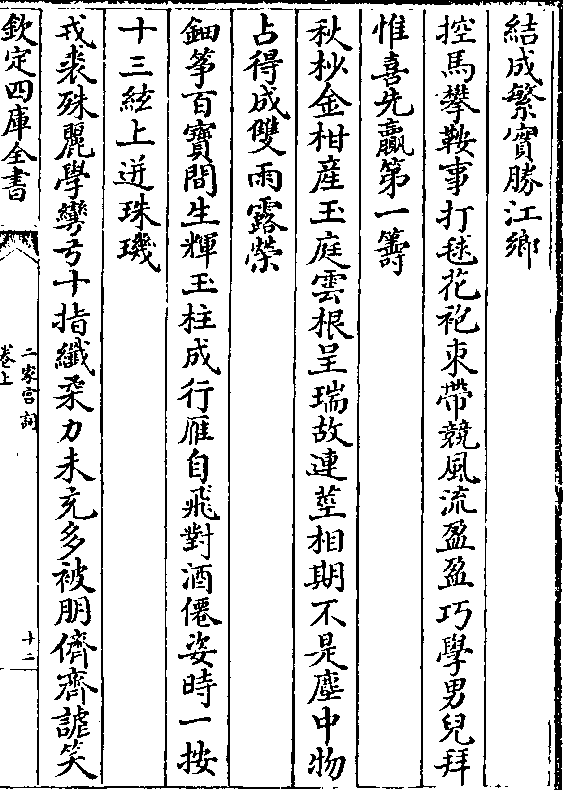 結成繁實勝江鄉
控馬攀鞍事打毬花袍束帶競風流盈盈巧學男兒拜
惟喜先贏第一籌
秋杪金柑産玉庭雲根呈瑞故連莖相期不是塵中物
占得成雙雨露榮
鈿筝百寳間生輝玉柱成行雁自飛對酒僊姿時一按
十三絃上迸珠璣
戎裘殊麗學彎弓十指纖柔力未充多被朋儕齊謔笑
欽定四庫全書
二家宫詞
卷上
十二